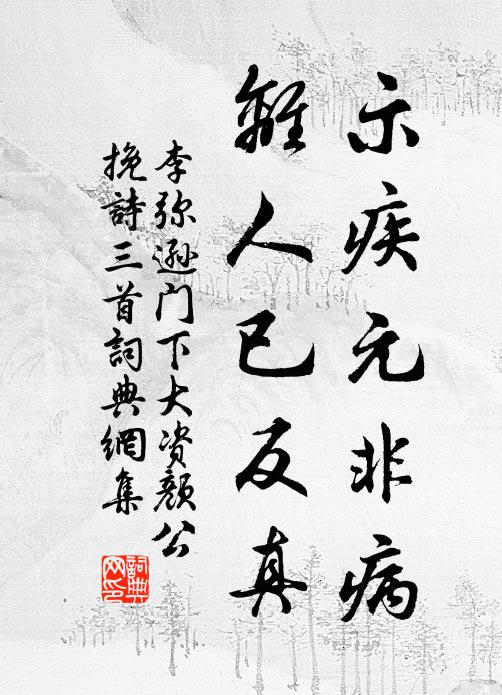 示疾元非病
離人已反真
李弥遜门下大资颜公
挽詩三首詞典網集
詞典网印